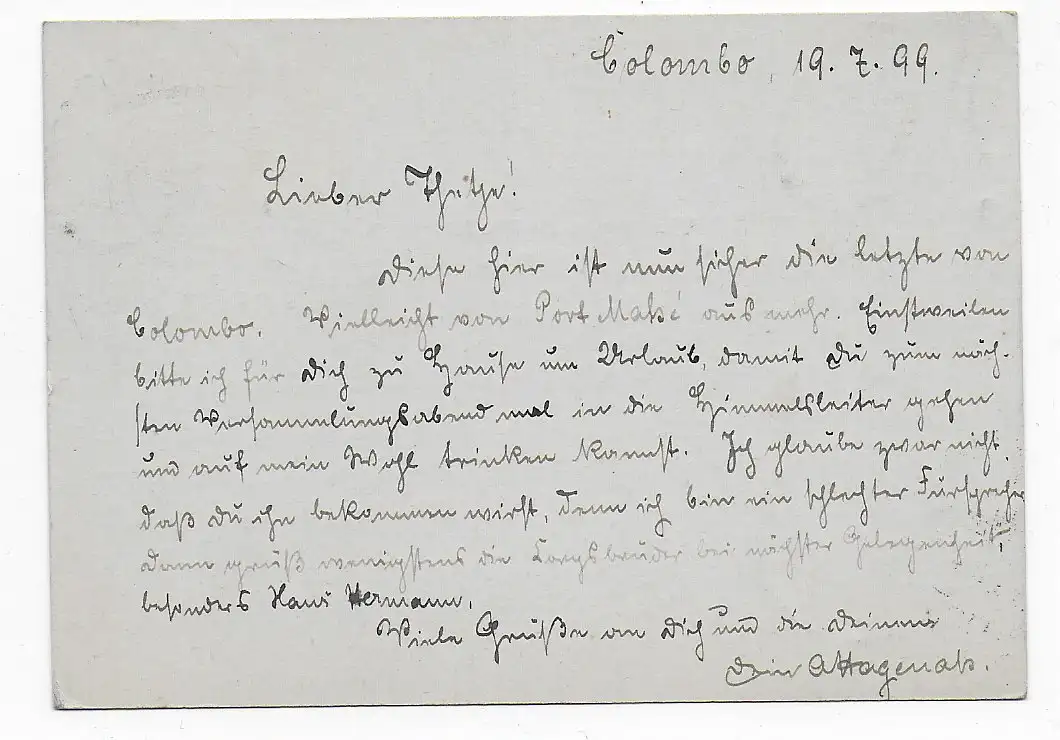 Colombo, 19. 7. 99.
Lieber Thetje!
Diese hier ist nun sicher die letzte von
Colombo. Vielleicht von Port Mahé aus mehr. Einstweilen
bitte ich für Dich zu Hause um Urlaub, damit Du zum näch-
sten Versammlungsabend mal in die Himmelsleiter gehen
und auf mein Wohl trinken kannst. Ich glaube zwar nicht,
daß Du ihn bekommen wirst, denn ich bin ein schlechter Fürsprecher
dann grüß wenigstens die Corpsbrüder bei nächster Gelegenheit,
besonders Hans Hermann.
Viele Grüße an Dich und die Deinen
Dein